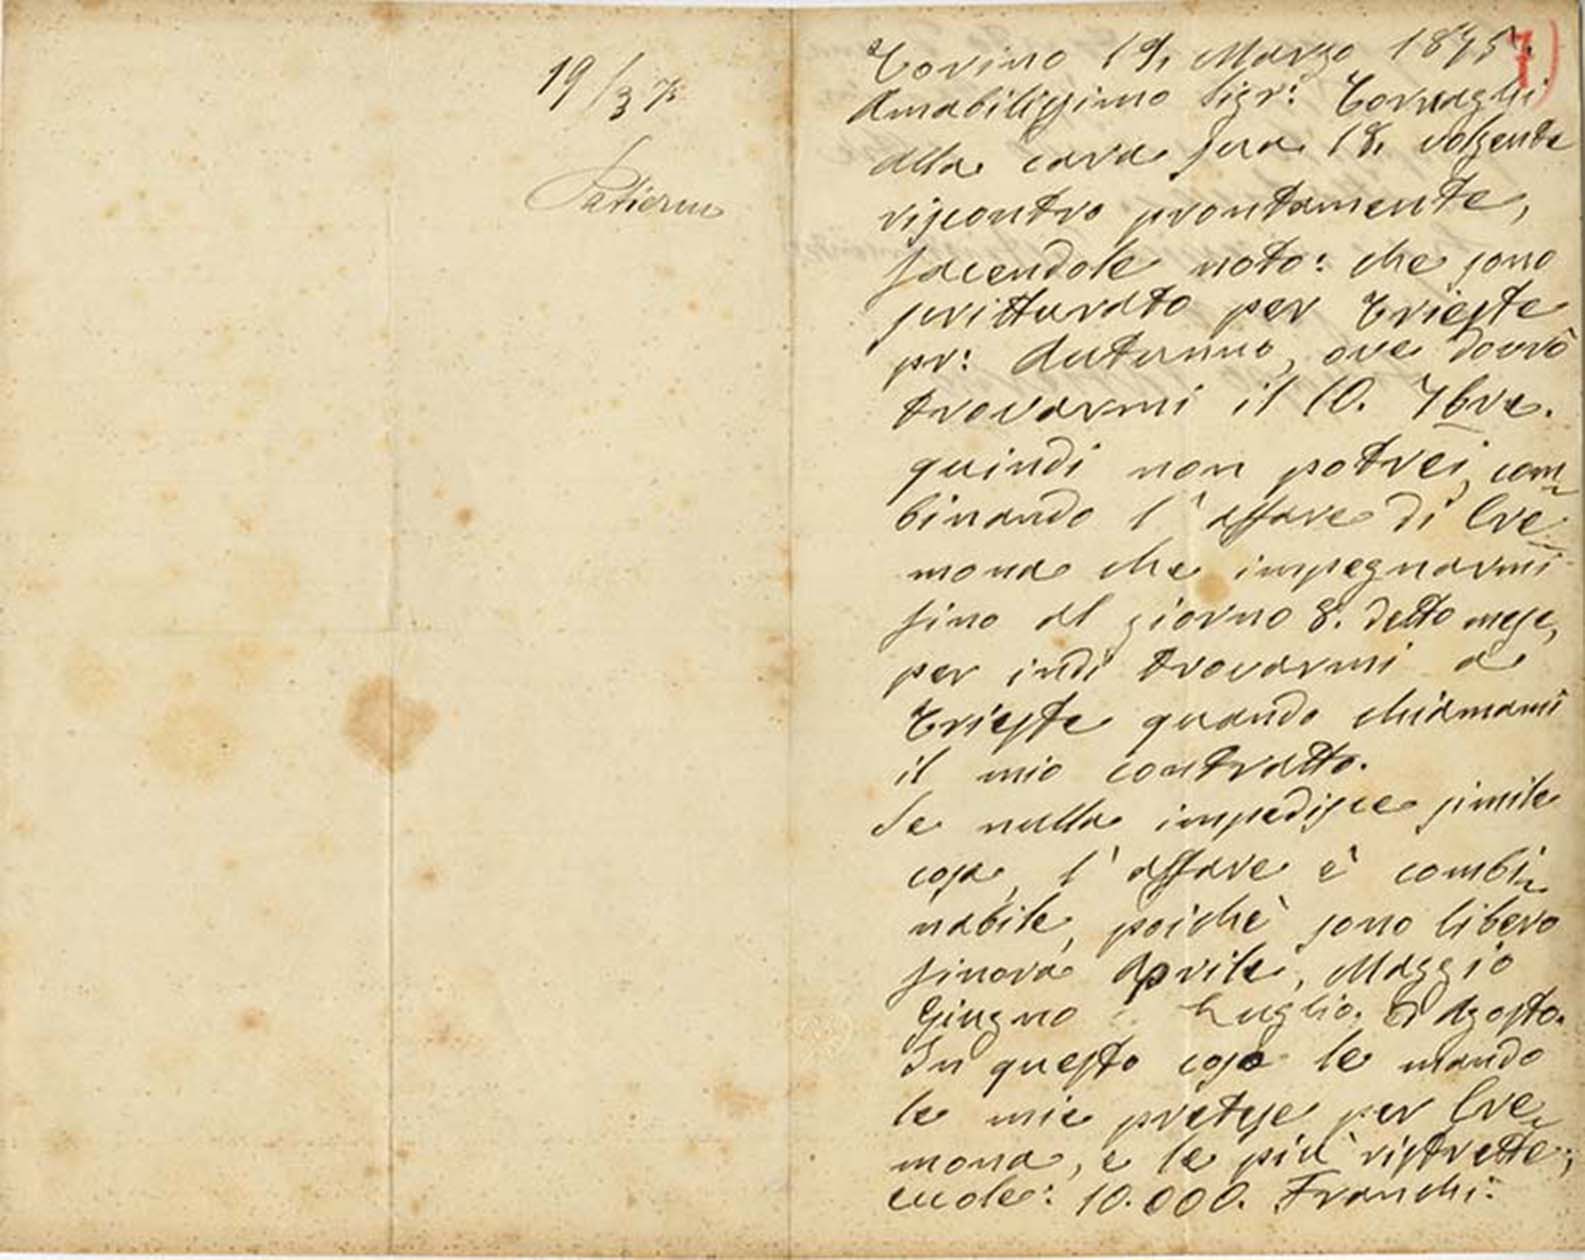 19/3 75
Patierno
7)
Torino 19, Marzo 1875.
Amabilissimo Sigr: Tornaghi
Alla cara sua 18, volgente
riscontro prontamente,
facendole noto: che sono
scritturato per Trieste
pr: Autunno, ove dovrò
trovarmi il 10. 7bre.
quindi non potrei, com
binando l'affare di Cre
mona che impegnarmi
fino al giorno 8. detto mese,
per indi trovarmi a
Trieste quando chiamami
il mio contratto.
Se nulla impedisce simile
cosa, l'affare è combi
nabile, poichè sono libero
finora Aprile, Maggio
Giugno Luglio. Agosto.
In questo caso le mando
le mie pretese per Cre
mona, e le più ristrette,
eccole: 10.000. Franchi: